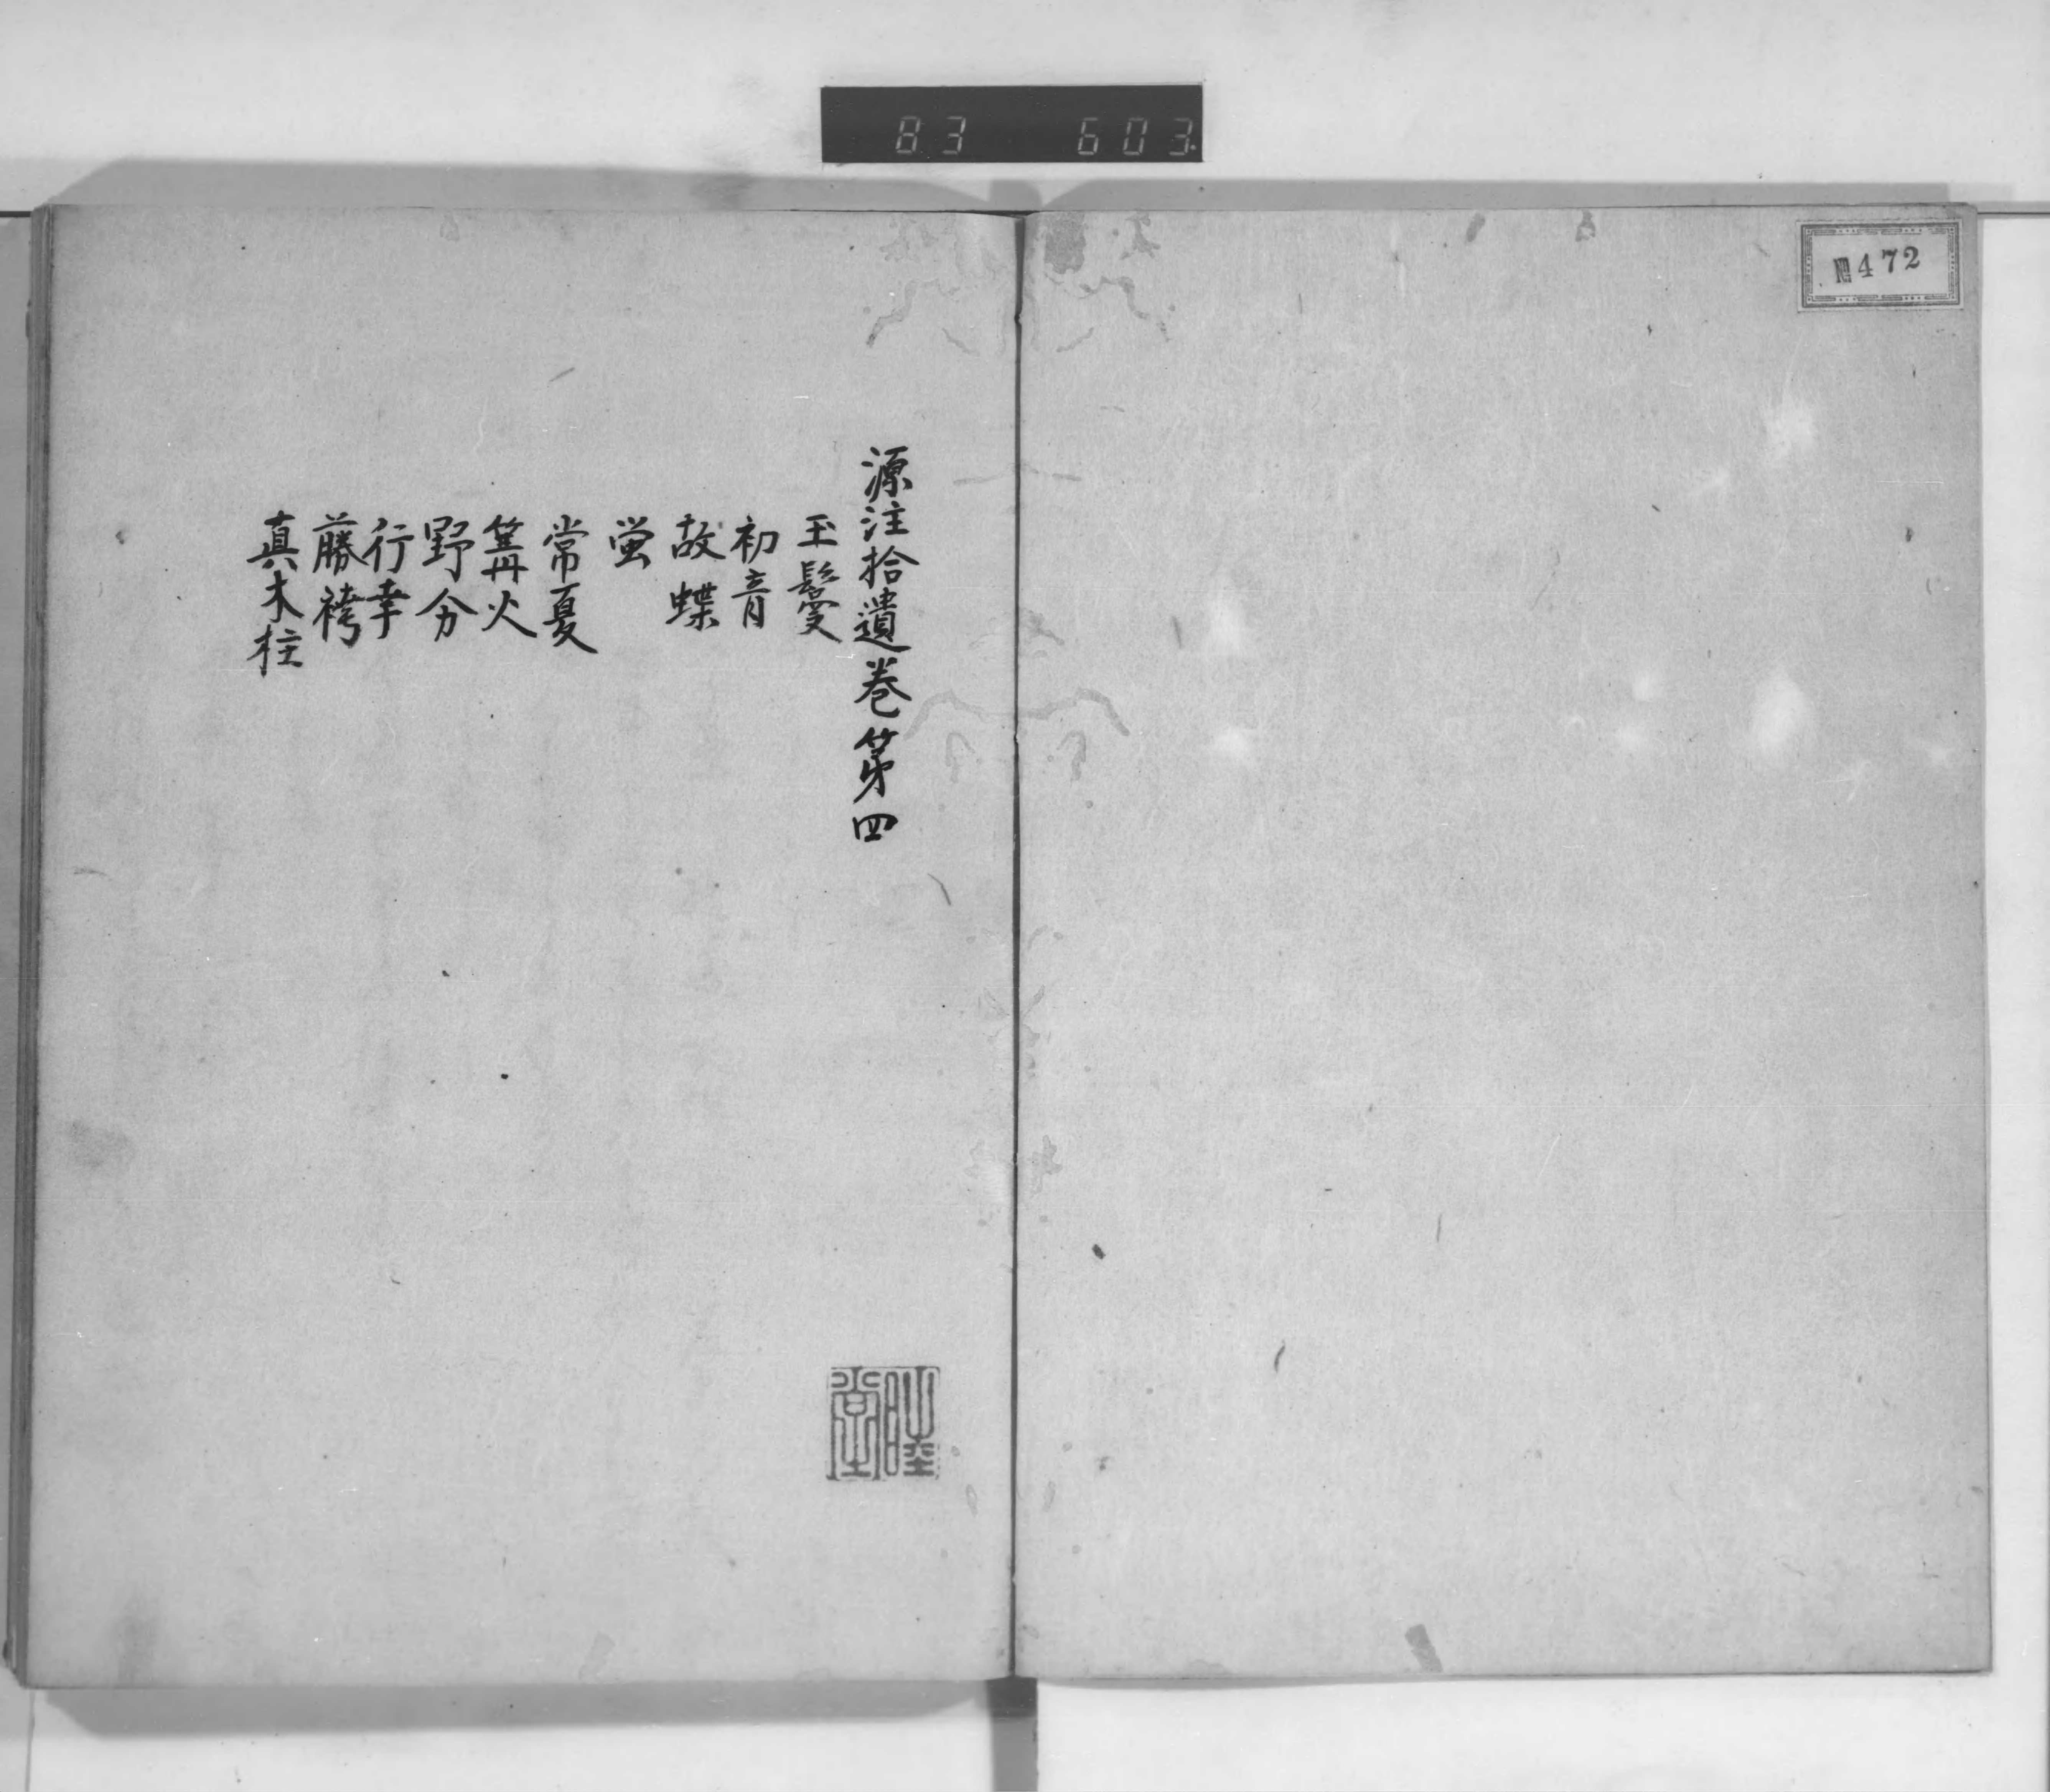 83 603
№472
源注拾遺巻第四
玉鬘
初音
故蝶
蛍
常夏
篝火
野分
行幸
藤袴
真木柱
睦堂